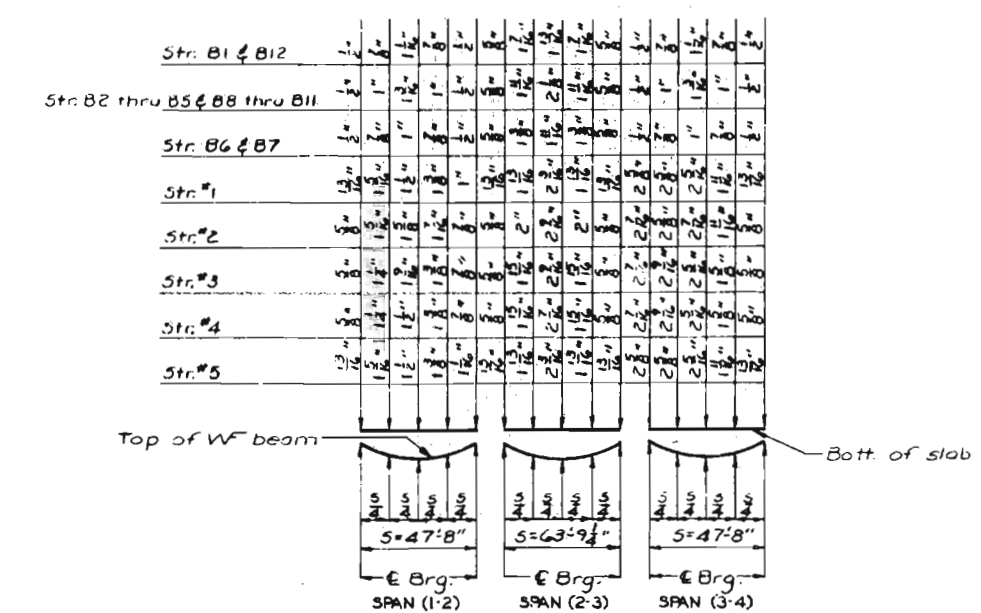 Str. B1 & B12 1/2" 7/8" 1 1/16" 7/8" 1/2" 5/8" 1 7/16" 1 13/16" 1 7/16" 5/8" 1/2" 7/8" 1 1/16" 7/8" 1/2"
Str. B2 thru B5 & B8 thru B11 1/2" 1" 1 3/16" 1" 1/2" 5/8" 1 11/16" 2 1/8" 1 11/16" 5/8" 1/2" 1" 1 3/16" 1" 1/2"
Str. B6 & B7 1/2" 7/8" 1" 7/8" 1/2" 5/8" 1 3/8" 1 11/16" 1 3/8" 5/8" 1/2" 7/8" 1" 7/8" 1/2"
Str. #1 13/16" 1 5/16" 1 1/2" 1 3/8" 1" 13/16" 1 13/16" 2 3/16" 1 13/16" 13/16" 2 5/8" 2 5/8" 2 5/16" 1 11/16" 13/16"
Str. #2 5/8" 1 5/16" 1 5/8" 1 7/16" 7/8" 5/8" 2" 2 9/16" 2" 5/8" 2 7/16" 2 5/8" 2 7/16" 1 11/16" 5/8"
Str. #3 5/8" 1 1/4" 1 9/16" 1 3/8" 7/8" 5/8" 1 15/16" 2 9/16" 1 15/16" 5/8" 2 7/16" 2 9/16" 2 5/16" 1 5/8" 5/8"
Str. #4 5/8" 1 1/4" 1 1/2" 1 3/8" 7/8" 5/8" 1 15/16" 2 7/16" 1 15/16" 5/8" 2 7/16" 2 9/16" 2 5/16" 1 5/8" 5/8"
Str. #5 13/16" 1 5/16" 1 1/2" 1 3/8" 1 1/16" 13/16" 1 13/16" 2 3/16" 1 13/16" 13/16" 2 5/8" 2 5/8" 2 5/16" 1 11/16" 13/16"
Top of WF beam
Bott. of slab
S/4 S/4 S/4 S/4 S/4 S/4 S/4 S/4 S/4 S/4 S/4 S/4
S=47'-8" S=63'-9 1/4" S=47'-8"
℄ Brg. ℄ Brg. ℄ Brg.
SPAN (1-2) SPAN (2-3) SPAN (3-4)